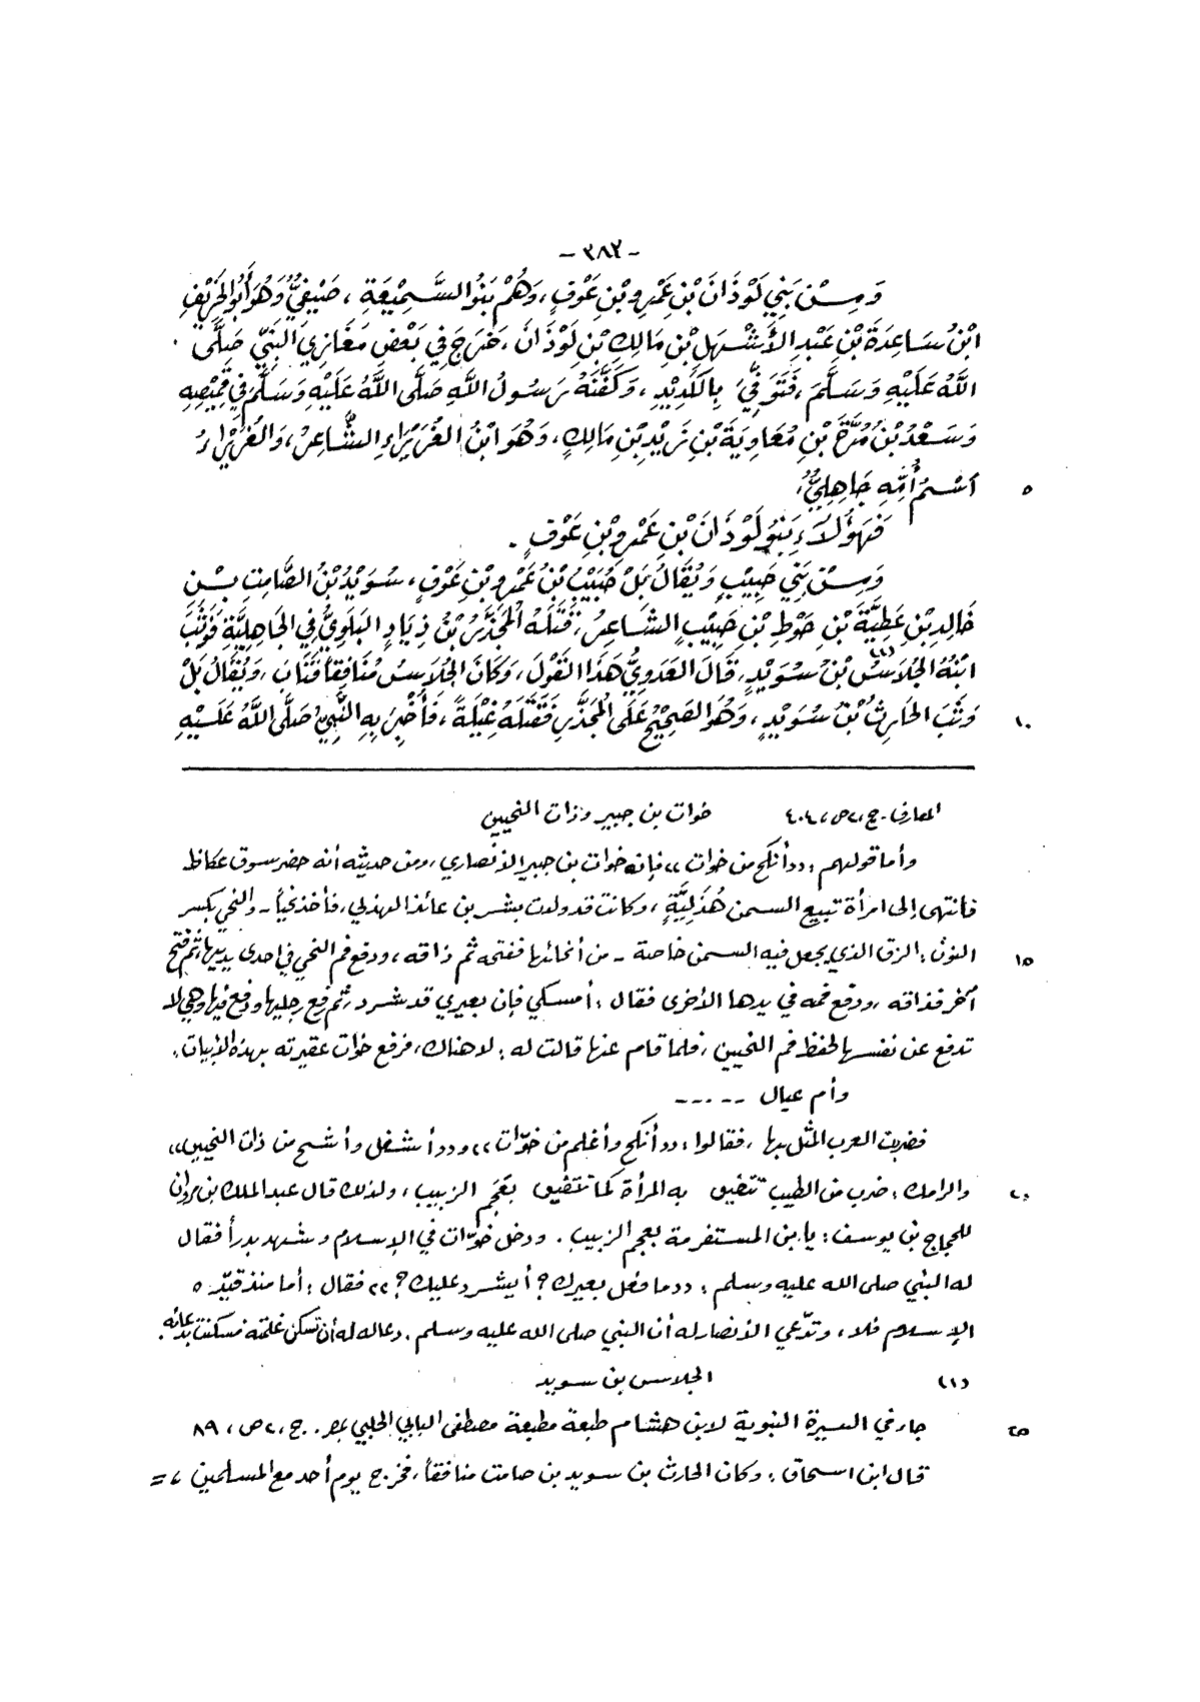 - ٣٨٢ -
وَمِنْ بَنِي لَوْذَانَ بْنِ عَمْرِو بْنِ عَوْفٍ، وَهُمْ بَنُو السَّمِيْعَةِ، صَيْفِيٌّ وَهُوَ أَبُو الخَرِيْفِ
ابْنُ سَاعِدَةَ بْنِ عَبْدِ الأَشْهَلِ بْنِ مَالِكِ بْنِ لَوْذَانَ، خَرَجَ فِي بَعْضِ مَغَازِي النَّبِيِّ صَلَّى
اللهُ عَلَيْهِ وَسَلَّمَ، فَتَوَفِّيَ بِالكَدِيْدِ، وَكَفَّنَهُ رَسُولُ اللَّهِ صَلَّى اللَّهُ عَلَيْهِ وَسَلَّمَ فِي قَمِيْصِهِ
وَسَعْدُ بْنُ مُرَّةَ بْنِ مُعَاوِيَةَ بْنِ زَيْدِ بْنِ مَالِكٍ، وَهُوَ ابْنُ الغُرَيْرَاءِ الشَّاعِرُ، وَالغُرَيْرَاءُ
٥ اسْمُ أُمِّهِ جَاهِلِيٌّ.
فَهَؤُلَاءِ بَنُو لَوْذَانَ بْنِ عَمْرِو بْنِ عَوْفٍ.
وَمِنْ بَنِي حَبِيْبٍ وَيُقَالُ بَلْ حُبَيْبُ بْنُ عَمْرِو بْنِ عَوْفٍ، سُوَيْدُ بْنُ الصَّامِتِ بْنِ
خَالِدِ بْنِ عَطِيَّةَ بْنِ حَوْطِ بْنِ حَبِيْبٍ الشَّاعِرُ، قَتَلَهُ المُجَذَّرُ بْنُ ذِيَادٍ البَلَوِيُّ فِي الجَاهِلِيَّةِ فَوَثَبَ
ابْنُهُ الجُلَاسُ (١) بْنُ سُوَيْدٍ، قَالَ العَدَوِيُّ هَذَا القَوْلَ، وَكَانَ الجُلَاسُ مُنَافِقاً فَتَابَ، وَيُقَالُ بَلْ
١٠ وَثَبَ الحَارِثُ بْنُ سُوَيْدٍ، وَهُوَ الصَحِيْحُ عَلَى المُجَذَّرِ فَقَتَلَهُ غِيْلَةً، فَأُخْبِرَ بِهِ النَّبِيُّ صَلَّى اللَّهُ عَلَيْهِ
المعارف - ج، ٢ ص، ٤٠٤ خوات بن جبير وذات النحيين
وأما قولهم: ((أنكح من خوات)) فإنه خوات بن جبير الأنصاري، ومن حديثه أنه حضر سوق عكاظ
فانتهى إلى امرأة تبيع السمن هُذَلِيَّةٍ، وكانت قد ولدت بشر بن عائذ الهذلي، فأخذ نحياً - والنحي بكسر
١٥ النون: الزق الذي يجعل فيه السمن خاصة - من أنحائها ففتحه ثم ذاقه، ودفع فم النحي في إحدى يديها، ثم فتح
آخر فذاقه، ودفع فمه في يدها الأخرى فقال: أمسكي فإن بعيري قد شرد، ثم رفع رجليها ودفع فيها وهي لا
تدفع عن نفسها لحفظ فم النحيين، فلما قام عنها قالت له: لا هناك، فرفع خوات عقيرته بهذه الأبيات:
وأم عيال -----
فضربت العرب المثل بها، فقالوا: ((أنكح وأغلم من خوّات)) و ((أشغل وأشح من ذات النحيين))
٢٠ والرامك: ضرب من الطيب تتضيق به المرأة كما تتضيق بعَجَم الزبيب، ولذلك قال عبد الملك بن مروان
للحجاج بن يوسف: يا بن المستفرمة بعجم الزبيب. ودخل خوّات في الإسلام وشهد بدراً فقال
له النبي صلى الله عليه وسلم: ((ما فعل بعيرك؟ أيشرد عليك؟)) فقال: أما منذ قيّده
الإسلام فلا، وتدّعي الأنصار له أن النبي صلى الله عليه وسلم. دعا له أن تسكن غلمته فسكنت بدعائه.
(١) الجلاس بن سويد
٢٥ جاء في السيرة النبوية لابن هشام طبعة مطبعة مصطفى البابي الحلبي بمصر. ج، ٢ ص، ٨٩
قال ابن اسحاق: وكان الحارث بن سويد بن صامت منافقاً، فخرج يوم أحد مع المسلمين، =